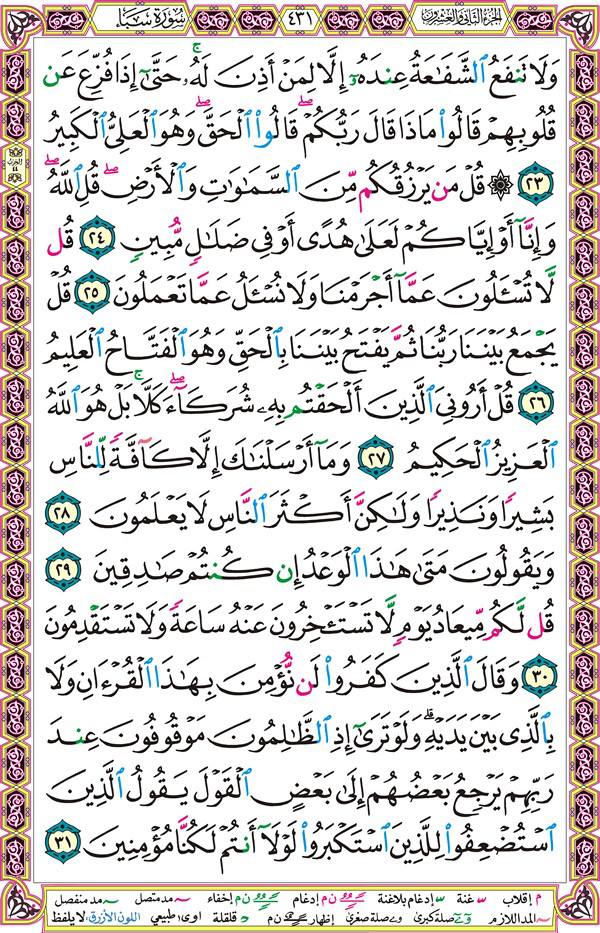 الجزء الثاني والعشرون
٤٣١
سورة سبأ
وَلَا تَنفَعُ ٱلشَّفَـٰعَةُ عِندَهُۥٓ إِلَّا لِمَنْ أَذِنَ لَهُۥۚ حَتَّىٰٓ إِذَا فُزِّعَ عَن
قُلُوبِهِمْ قَالُوا۟ مَاذَا قَالَ رَبُّكُمْۖ قَالُوا۟ ٱلْحَقَّۖ وَهُوَ ٱلْعَلِىُّ ٱلْكَبِيرُ
٢٣ ۞ قُلْ مَن يَرْزُقُكُم مِّنَ ٱلسَّمَـٰوَٰتِ وَٱلْأَرْضِۖ قُلِ ٱللَّهُۖ
وَإِنَّآ أَوْ إِيَّاكُمْ لَعَلَىٰ هُدًى أَوْ فِى ضَلَـٰلٍ مُّبِينٍ ٢٤ قُل
لَّا تُسْـَٔلُونَ عَمَّآ أَجْرَمْنَا وَلَا نُسْـَٔلُ عَمَّا تَعْمَلُونَ ٢٥ قُلْ
يَجْمَعُ بَيْنَنَا رَبُّنَا ثُمَّ يَفْتَحُ بَيْنَنَا بِٱلْحَقِّ وَهُوَ ٱلْفَتَّاحُ ٱلْعَلِيمُ
٢٦ قُلْ أَرُونِىَ ٱلَّذِينَ أَلْحَقْتُم بِهِۦ شُرَكَآءَۖ كَلَّاۚ بَلْ هُوَ ٱللَّهُ
ٱلْعَزِيزُ ٱلْحَكِيمُ ٢٧ وَمَآ أَرْسَلْنَـٰكَ إِلَّا كَآفَّةً لِّلنَّاسِ
بَشِيرًا وَنَذِيرًا وَلَـٰكِنَّ أَكْثَرَ ٱلنَّاسِ لَا يَعْلَمُونَ ٢٨
وَيَقُولُونَ مَتَىٰ هَـٰذَا ٱلْوَعْدُ إِن كُنتُمْ صَـٰدِقِينَ ٢٩
قُل لَّكُم مِّيعَادُ يَوْمٍ لَّا تَسْتَـْٔخِرُونَ عَنْهُ سَاعَةً وَلَا تَسْتَقْدِمُونَ
٣٠ وَقَالَ ٱلَّذِينَ كَفَرُوا۟ لَن نُّؤْمِنَ بِهَـٰذَا ٱلْقُرْءَانِ وَلَا
بِٱلَّذِى بَيْنَ يَدَيْهِۗ وَلَوْ تَرَىٰٓ إِذِ ٱلظَّـٰلِمُونَ مَوْقُوفُونَ عِندَ
رَبِّهِمْ يَرْجِعُ بَعْضُهُمْ إِلَىٰ بَعْضٍ ٱلْقَوْلَ يَقُولُ ٱلَّذِينَ
ٱسْتُضْعِفُوا۟ لِلَّذِينَ ٱسْتَكْبَرُوا۟ لَوْلَآ أَنتُمْ لَكُنَّا مُؤْمِنِينَ ٣١
م إقلاب س غنة س إدغام بلاغنة ن م إدغام ن م إخفاء مد متصل مد منفصل
المد اللازم صلة كبرى صلة صغرى إظهار ن م قلقلة اوى طبيعي اللون الأزرق: لا يلفظ